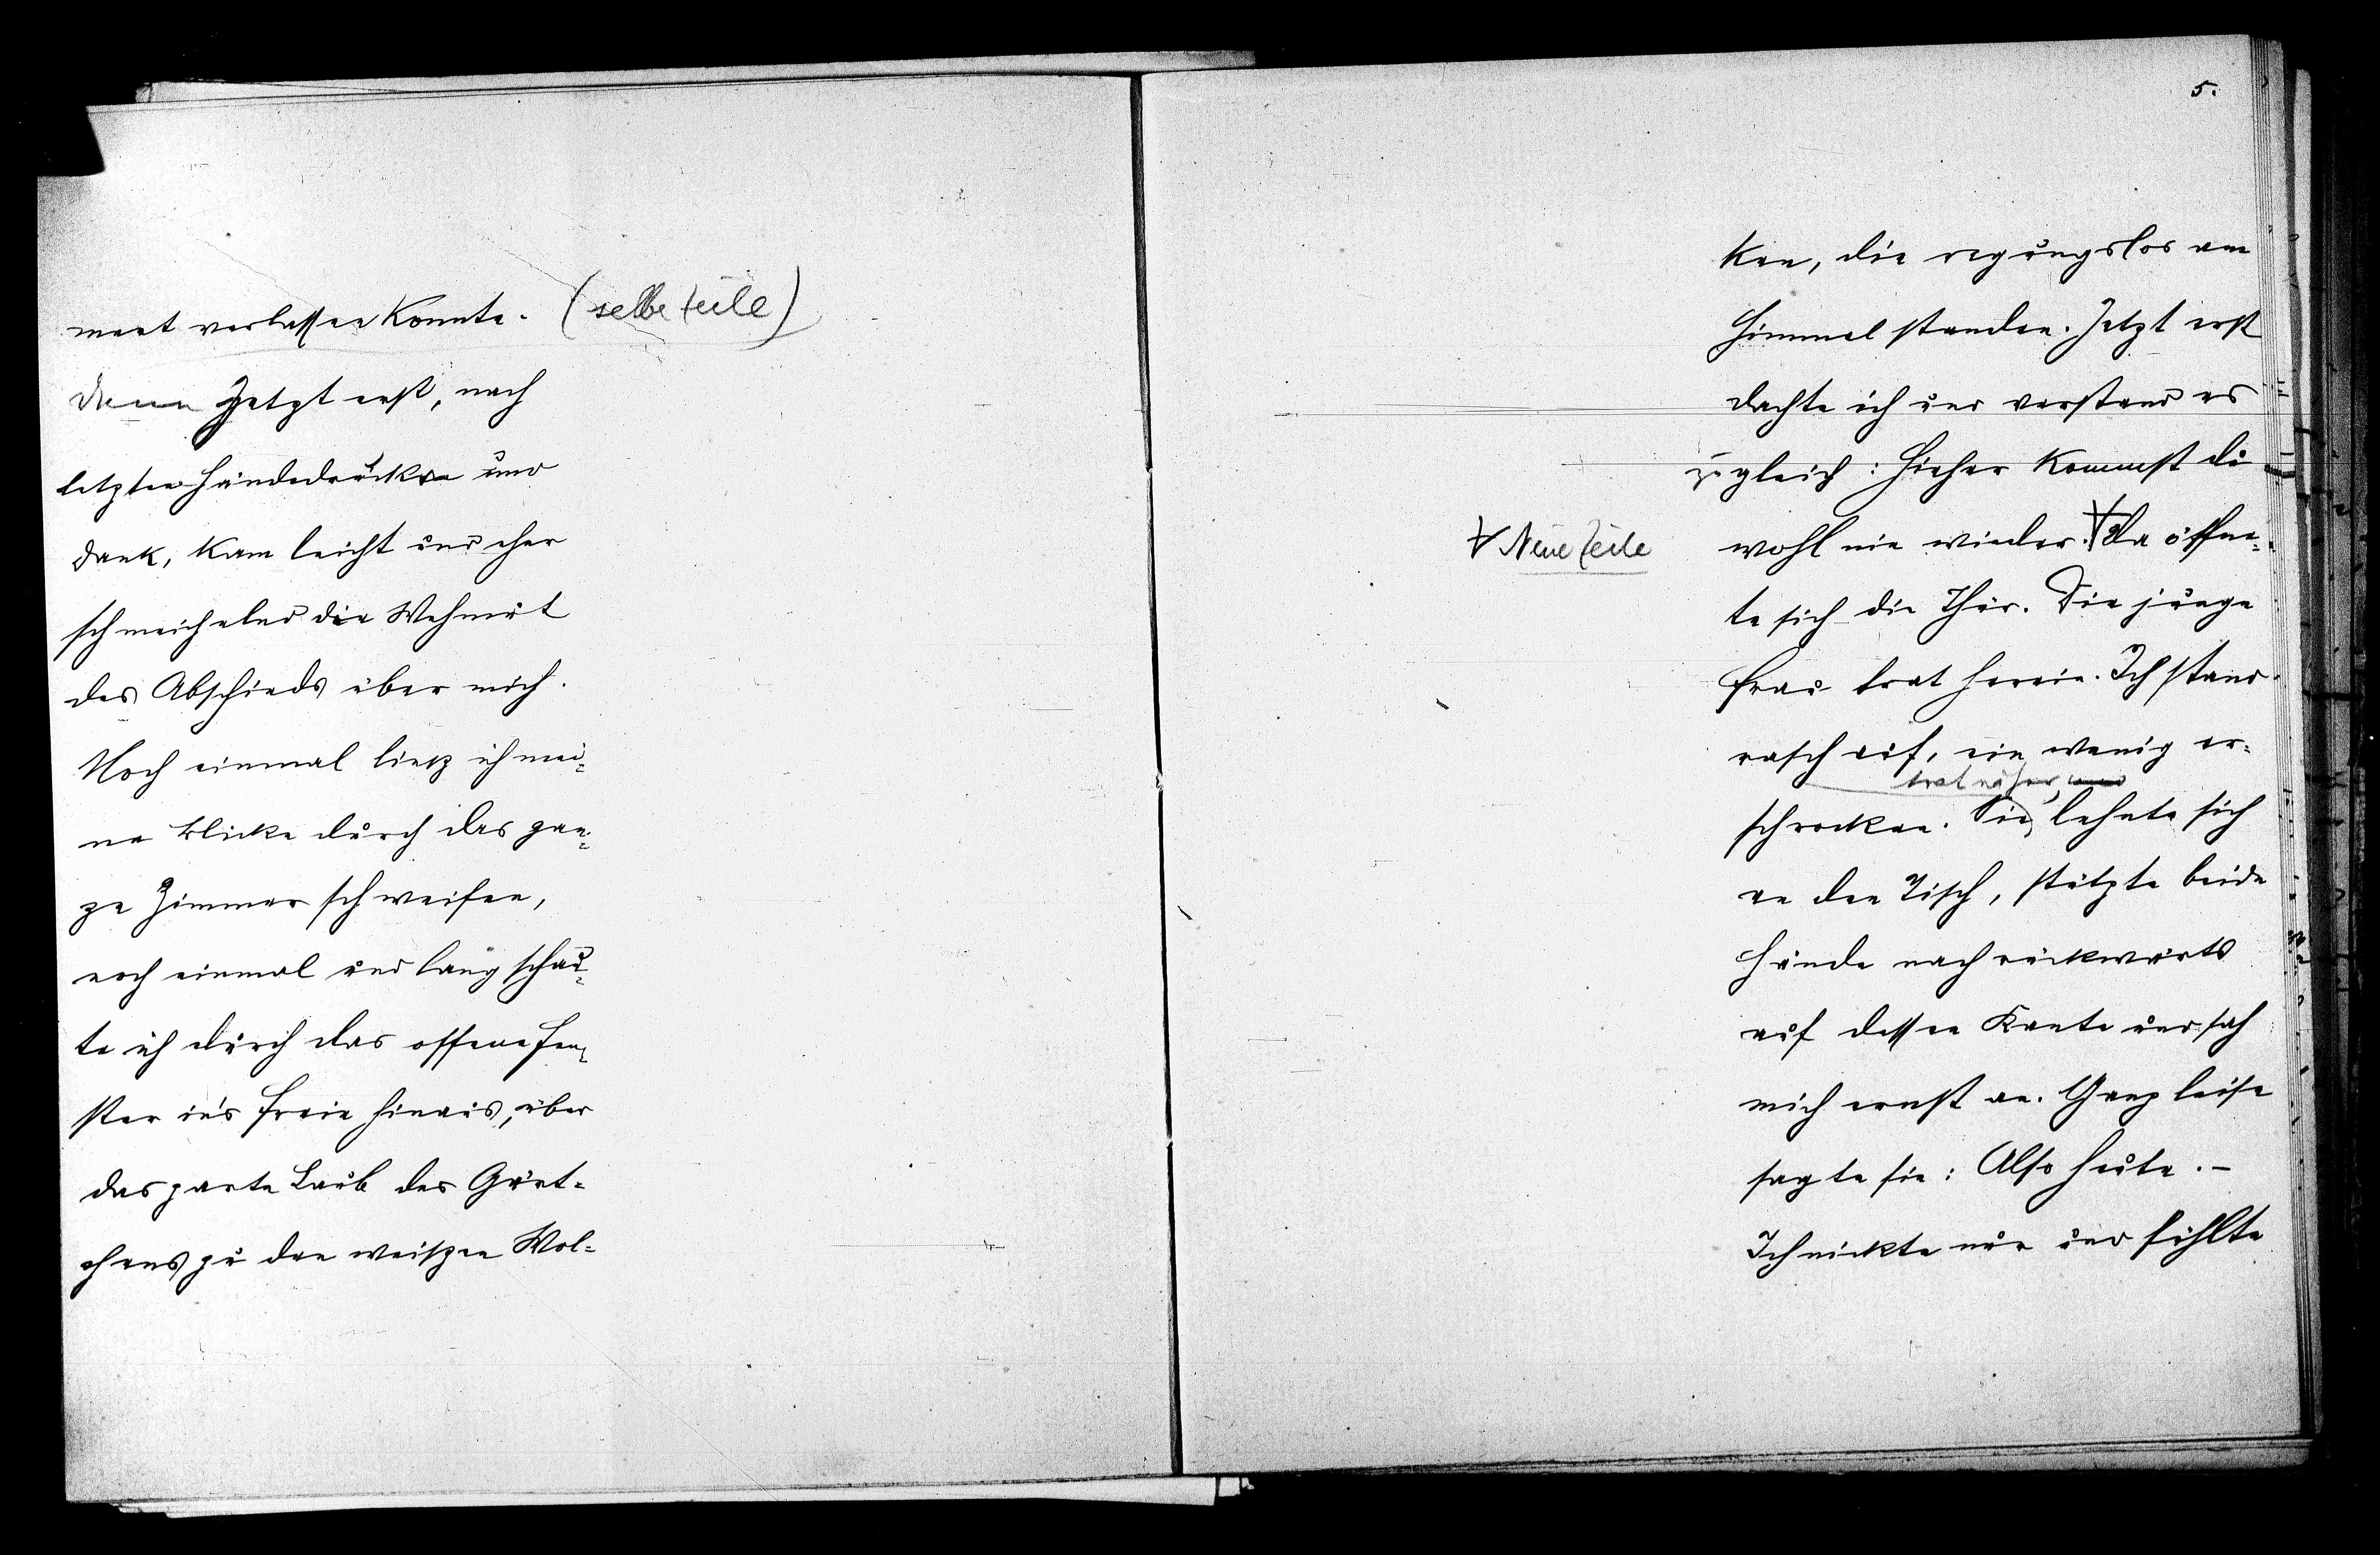 ment verlassen konnte. (selbe Zeile)
Denn Jetzt erst, nach
letzten Händedrücken und
Dank, kam leicht und eher
schmeichelnd die Wehmut
des Abschieds über mich.
Noch einmal liesz ich mei=
ne Blicke durch das gan=
ze Zimmer schweifen,
noch einmal und lang schau=
te ich durch das offene Fen=
ster in's Freie hinaus, über
das zarte Laub des Gärt=
chens zu den weiszen Wol=
5.
ken, die regungslos am
Himmel standen. Jetzt erst
dachte ich und verstand es
zugleich: Hieher kommst du
wohl nie wieder. Da öffne=
Neue Zeile
te sich die Thür. Die junge
Frau trat herein. Ich stand
rasch auf, ein wenig er=
trat näher, und
schrocken. Sie lehnte sich
an den Tisch, stützte beide
Hände nach rückwärts
auf dessen Kante und sah
mich ernst an. Ganz leise
sagte sie: Also heute. –
Ich nickte nur und fühlte